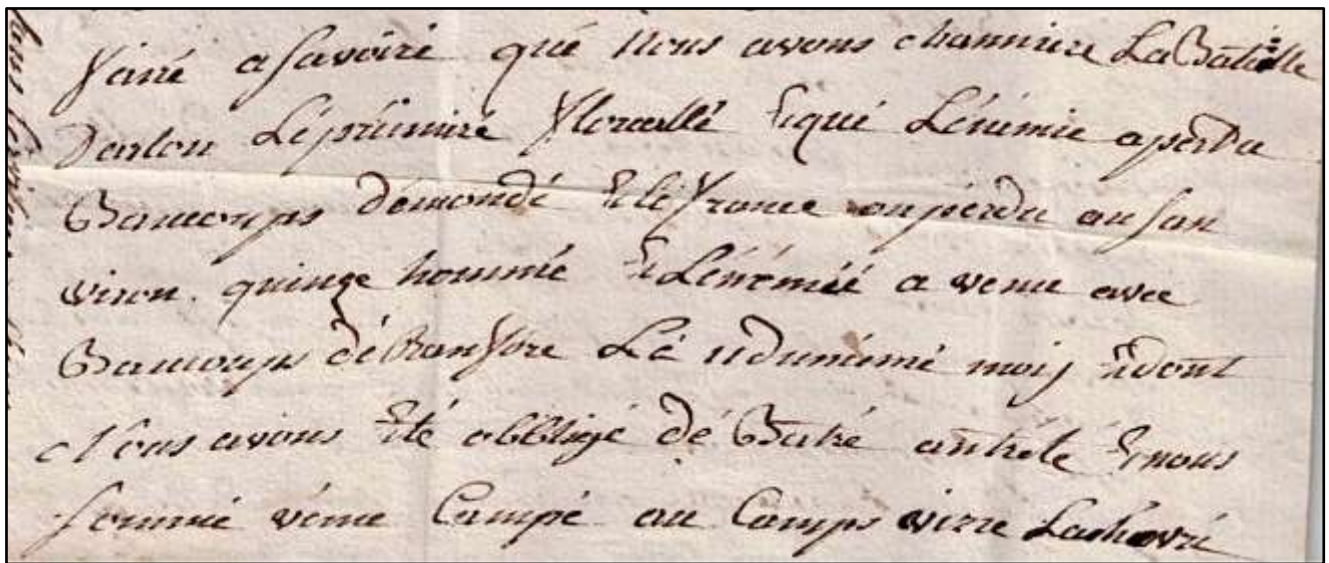 faire a savoiré qué nous avons channiere La Batialle
Darlon Lé prémiere floreallé Equé Lénémie a perdu
Baucoups démondé Et lé france on perdu an san
viron quinze hommé Et Lénémié a venu avec
Baucoups dé Ranfore Lé 11 du mémé mois Edont
Nous avons Eté obblligé dé Batré antréte Et nous
sommé vénu Campé au Camps